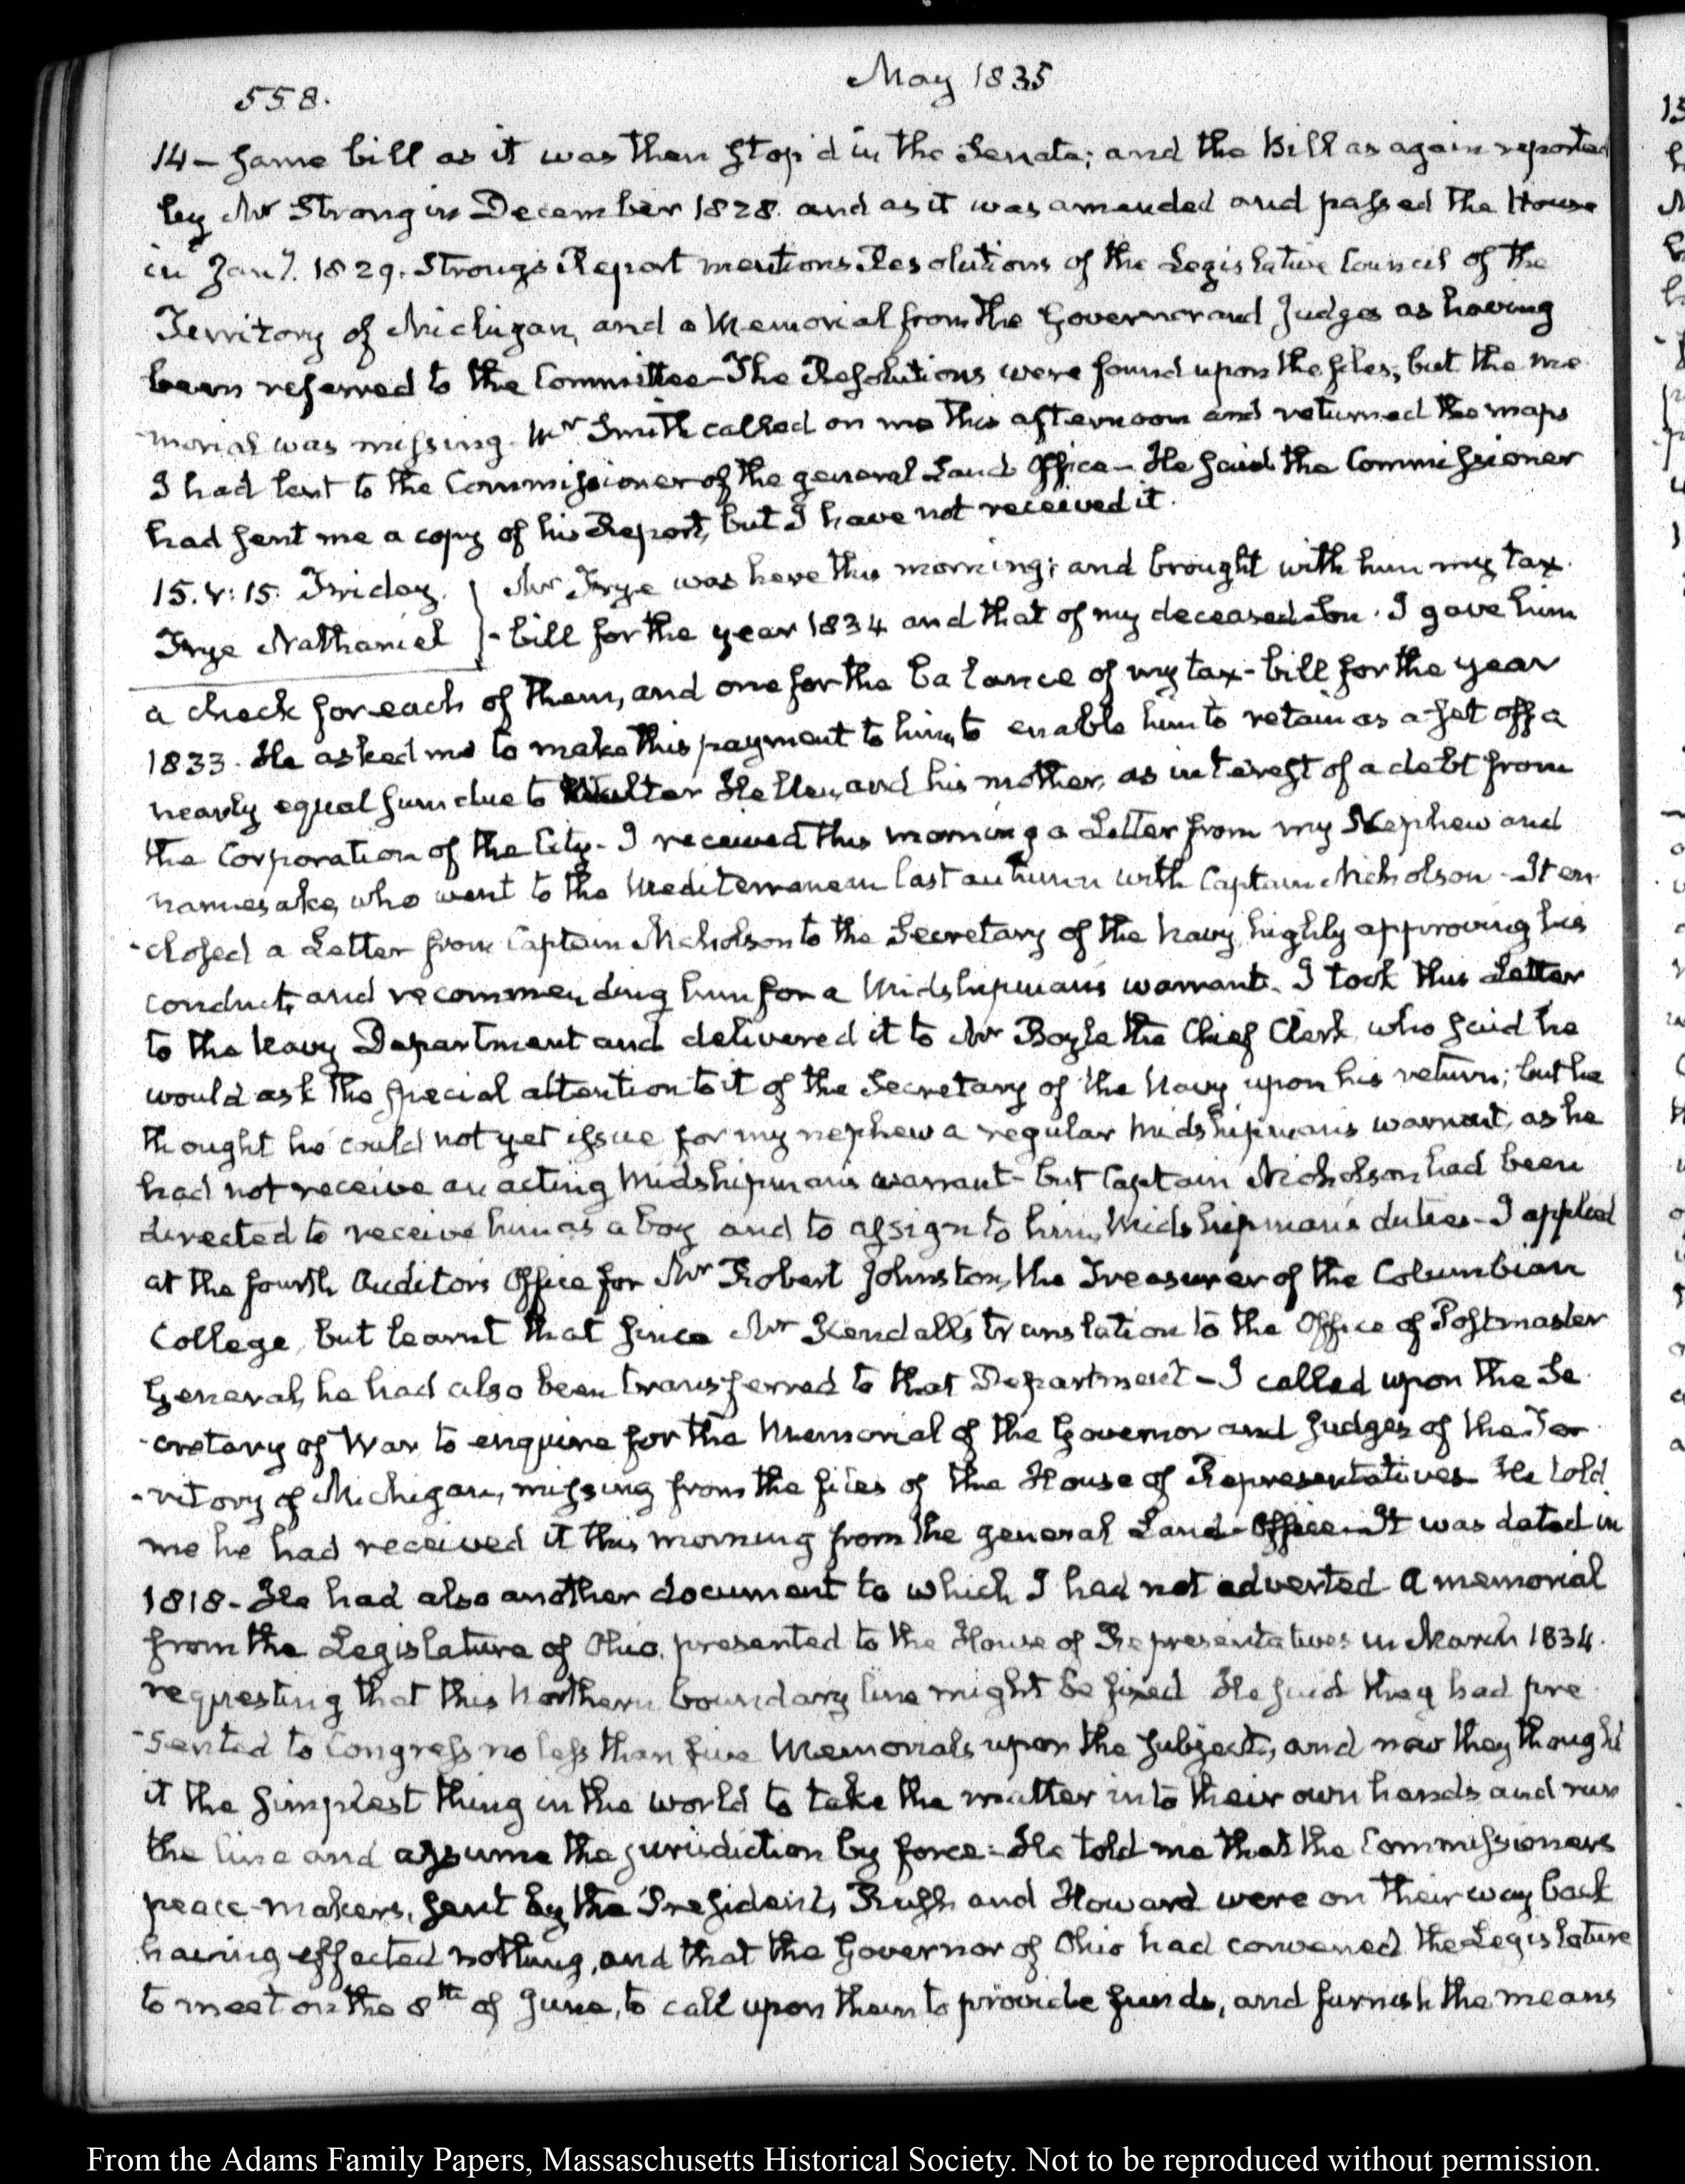 May 1835
558.
14 – same bill as it was then stop'd in the Senate; and the Bill as again reported
by Mr Strong in December 1828. and as it was amended and passed the House
in Jany. 1829. Strongs Report mentions Resolutions of the Legislative Council of the
Territory of Michigan, and a Memorial from the Governor and Judges as having
been referred to the Committee – The Resolutions were found upon the files; but the me
-morial was missing. Mr Smith called on me this afternoon and returned the maps
I had lent to the Commissioner of the general Land Office – He said the Commissioner
had sent me a copy of his Report, but I have not received it.
15. V: 15. Friday. Mr Frye was here this morning; and brought with him my tax.
Frye Nathaniel - bill for the year 1834 and that of my deceased Son. I gave him
a check for each of them, and one for the balance of my tax-bill for the year
1833. He asked me to make this payment to him, to enable him to retain as a set off a
nearly equal sum due to Walter Hellen, and his mother, as interest of a debt from
the Corporation of the City - I received this morning a Letter from my Nephew and
namesake, who went to the Mediterranean last autumn with Captain Nicholson - It en
-closed a Letter from Captain Nicholson to the Secretary of the Navy, highly approving his
conduct, and recommending him for a Midshipman's warrant. I took this Letter
to the Navy Department and delivered it to Mr Boyle the Chief Clerk, who said he
would ask the special attention to it of the Secretary of the Navy upon his return; but he
thought he could not yet issue for my nephew a regular Midshipman's warrant, as he
had not receive an acting Midshipman's warrant - but Captain Nicholson had been
directed to receive him as a boy and to assign to him, Midshipman's duties - I applied
at the fourth Auditor's Office for Mr Robert Johnston, the Treasurer of the Columbian
College, but learnt that since Mr Kendall's translation to the Office of Postmaster
General, he had also been transferred to that Department – I called upon the Se
-cretary of War to enquire for the Memorial of the Governor and Judges of the Ter
-ritory of Michigan, missing from the files of the House of Representatives He told
me he had received it this morning from the general Land-Office - It was dated in
1818 - He had also another document to which I had not adverted A memorial
from the Legislature of Ohio, presented to the House of Representatives in March 1834.
requesting that this Northern boundary line might be fixed He said they had pre
-sented to Congress no less than five Memorials upon the subject, and now they thought
it the simplest thing in the world to take the matter into their own hands and run
the line and assume the jurisdiction by force - He told me that the Commissioners
peace-makers, sent by the President, Rush and Howard were on their way back
having effected nothing, and that the Governor of Ohio had convened the Legislature
to meet on the 8th of June, to call upon them to provide funds, and furnish the means
From the Adams Family Papers, Massachusetts Historical Society. Not to be reproduced without permission.